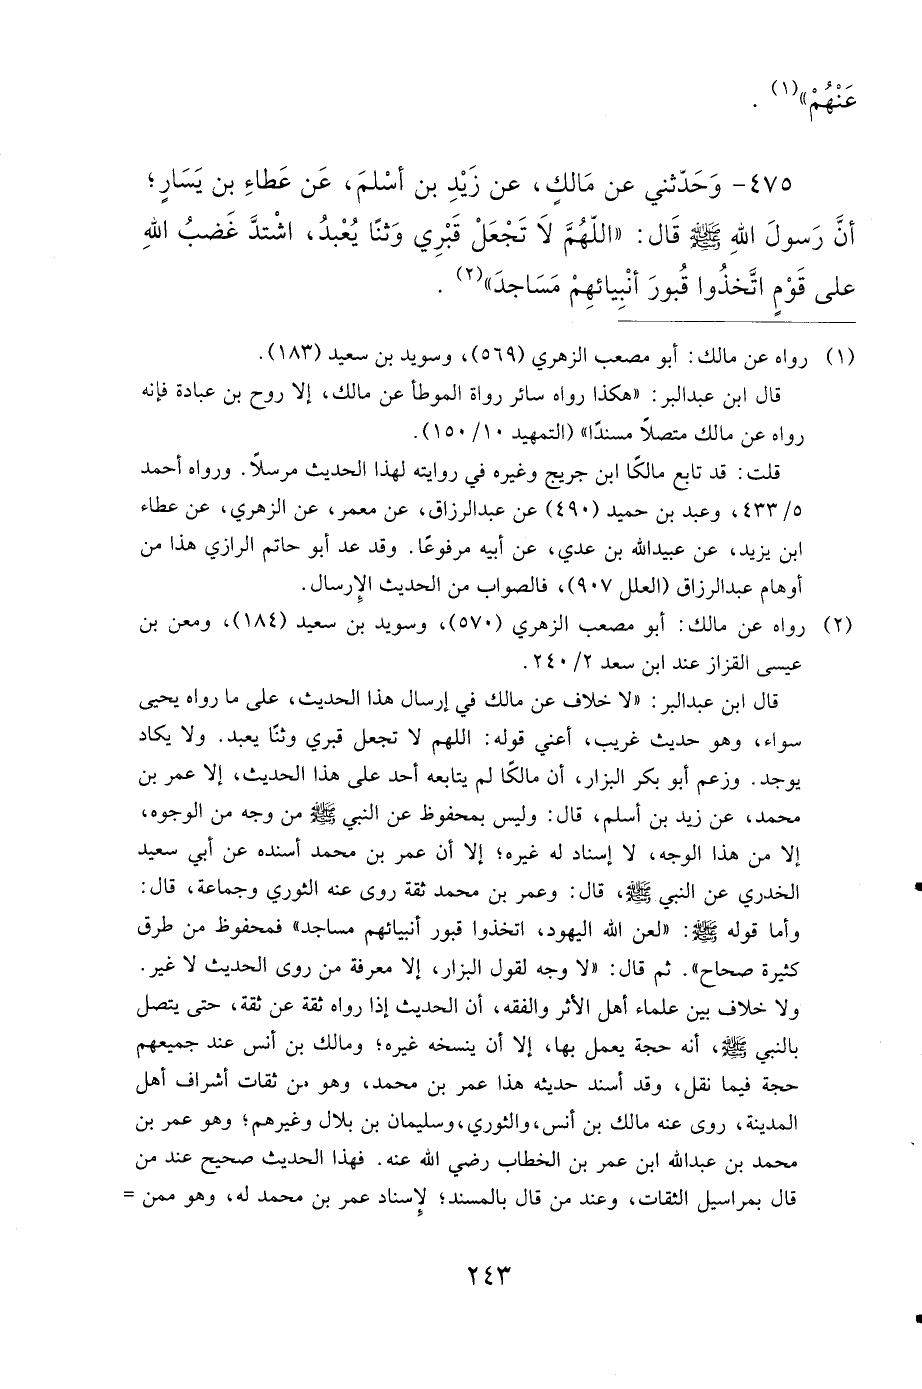 عَنْهُمْ»(١) .
٤٧٥- وَحَدّثني عن مَالكٍ، عن زَيْدِ بن أسْلمَ، عَن عَطاءِ بن يَسَارٍ؛
أنَّ رَسولَ اللهِ ﷺ قَال: «اللّهُمَّ لاَ تَجْعَلْ قَبْرِي وَثنًا يُعْبدُ، اشْتدَّ غَضبُ اللهِ
على قَوْمٍ اتَّخذُوا قُبورَ أنْبِيائهِمْ مَسَاجدَ»(٢) .
(١) رواه عن مالك: أبو مصعب الزهري (٥٦٩)، وسويد بن سعيد (١٨٣).
قال ابن عبدالبر: «هكذا رواه سائر رواة الموطأ عن مالك، إلا روح بن عبادة فإنه
رواه عن مالك متصلاً مسندًا» (التمهيد ١٠/ ١٥٠).
قلت: قد تابع مالكًا ابن جريج وغيره في روايته لهذا الحديث مرسلاً. ورواه أحمد
٥/ ٤٣٣، وعبد بن حميد (٤٩٠) عن عبدالرزاق، عن معمر، عن الزهري، عن عطاء
ابن يزيد، عن عبيدالله بن عدي، عن أبيه مرفوعًا. وقد عد أبو حاتم الرازي هذا من
أوهام عبدالرزاق (العلل ٩٠٧)، فالصواب من الحديث الإرسال.
(٢) رواه عن مالك: أبو مصعب الزهري (٥٧٠)، وسويد بن سعيد (١٨٤)، ومعن بن
عيسى القزاز عند ابن سعد ٢/ ٢٤٠.
قال ابن عبدالبر: «لا خلاف عن مالك في إرسال هذا الحديث، على ما رواه يحيى
سواء، وهو حديث غريب، أعني قوله: اللهم لا تجعل قبري وثنًا يعبد. ولا يكاد
يوجد. وزعم أبو بكر البزار، أن مالكًا لم يتابعه أحد على هذا الحديث، إلا عمر بن
محمد، عن زيد بن أسلم، قال: وليس بمحفوظ عن النبي ﷺ من وجه من الوجوه،
إلا من هذا الوجه، لا إسناد له غيره؛ إلا أن عمر بن محمد أسنده عن أبي سعيد
الخدري عن النبي ﷺ، قال: وعمر بن محمد ثقة روى عنه الثوري وجماعة، قال:
وأما قوله ﷺ: «لعن الله اليهود، اتخذوا قبور أنبيائهم مساجد» فمحفوظ من طرق
كثيرة صحاح». ثم قال: «لا وجه لقول البزار، إلا معرفة من روى الحديث لا غير.
ولا خلاف بين علماء أهل الأثر والفقه، أن الحديث إذا رواه ثقة عن ثقة، حتى يتصل
بالنبي ﷺ، أنه حجة يعمل بها، إلا أن ينسخه غيره؛ ومالك بن أنس عند جميعهم
حجة فيما نقل، وقد أسند حديثه هذا عمر بن محمد، وهو من ثقات أشراف أهل
المدينة، روى عنه مالك بن أنس،والثوري،وسليمان بن بلال وغيرهم؛ وهو عمر بن
محمد بن عبدالله ابن عمر بن الخطاب رضي الله عنه. فهذا الحديث صحيح عند من
قال بمراسيل الثقات، وعند من قال بالمسند؛ لإسناد عمر بن محمد له، وهو ممن =
٢٤٣